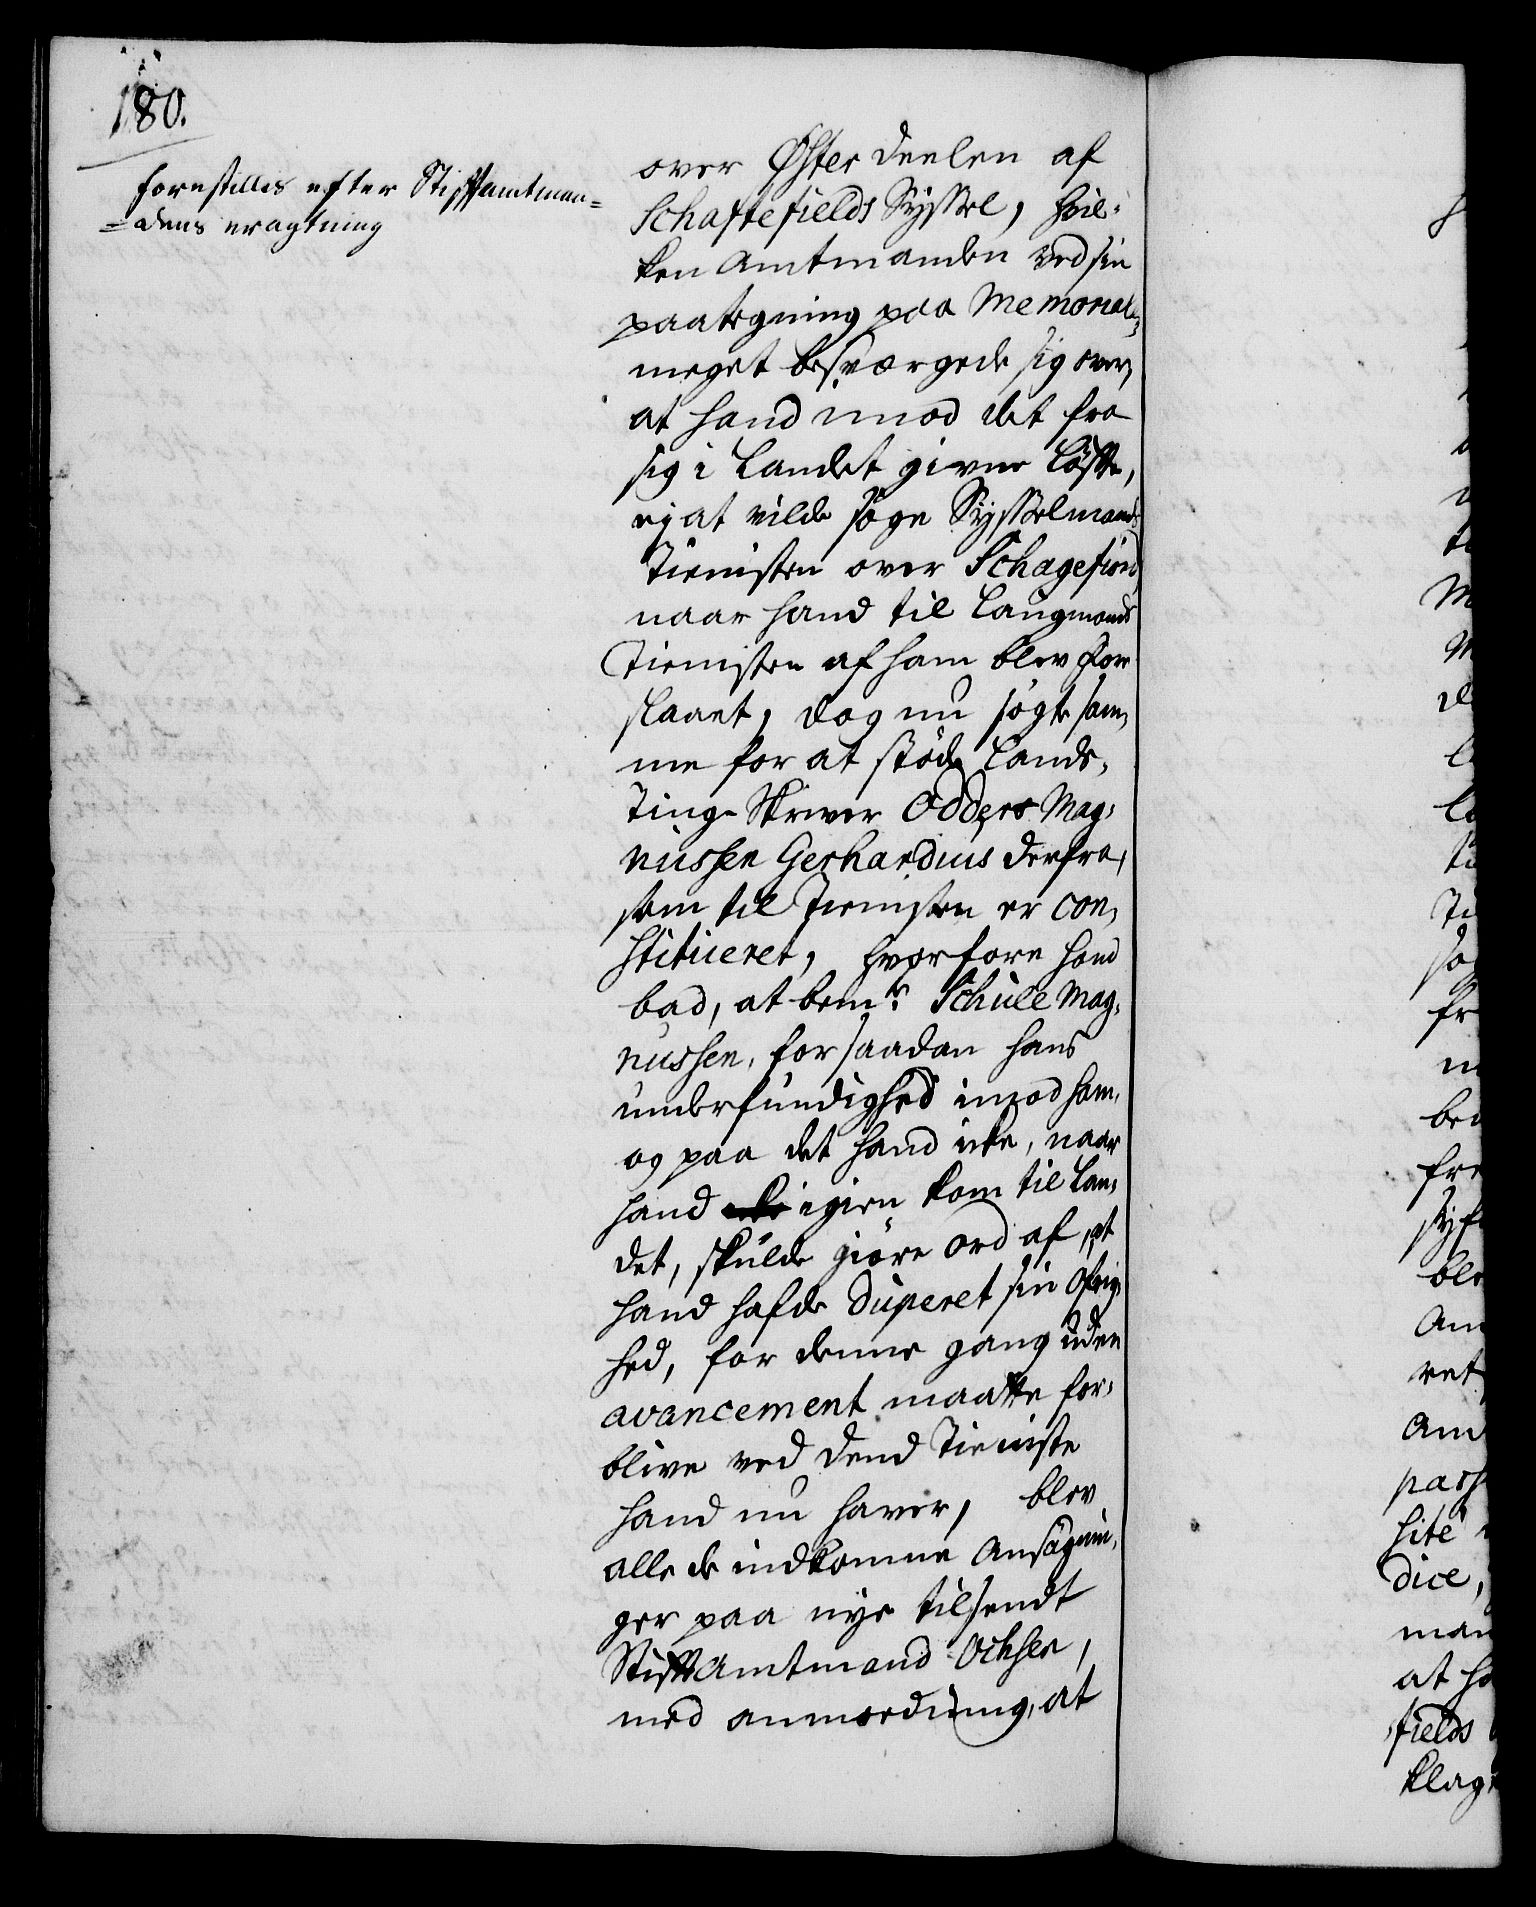 180.
forestilles efter Stiftamtman=
=dens eragtning
over Øster deelen af
Schaftefields Syssel, hvil-
ken Amtmanden ved sin
paategning paa Memorialen
meget besværgede sig over,
at hand imod det fra
sig i Landet givne Løfte,
ej at vilde søge Sysselmands
Tienisten over Schagefiord,
naar hand til Laugmands
Tienisten af ham blev for
slaaet, dog nu søgte sam,
me for at støde Lands,
Ting-Skriver Odders Mag,
nussen Gerhardius derfra,
som til Tienisten er con,
stitueret, hvorfore hand
bad, at bemte Schule Mag,
nussen, for saadan hans
underfundighed imod ham,
og paa det hand icke, naar
hand igien kom til Lan,
det, skulde giøre ord af, at
hand hafde duperet sin Øfrig
hed, for denne gang uden
avancement maatte for,
blive ved dend Tieniste
hand nu haver, blev
alle de indkomne Ansøgnin,
ger paa nye tilsendt
Stiftamtmand Ochsen,
med anmodning, at